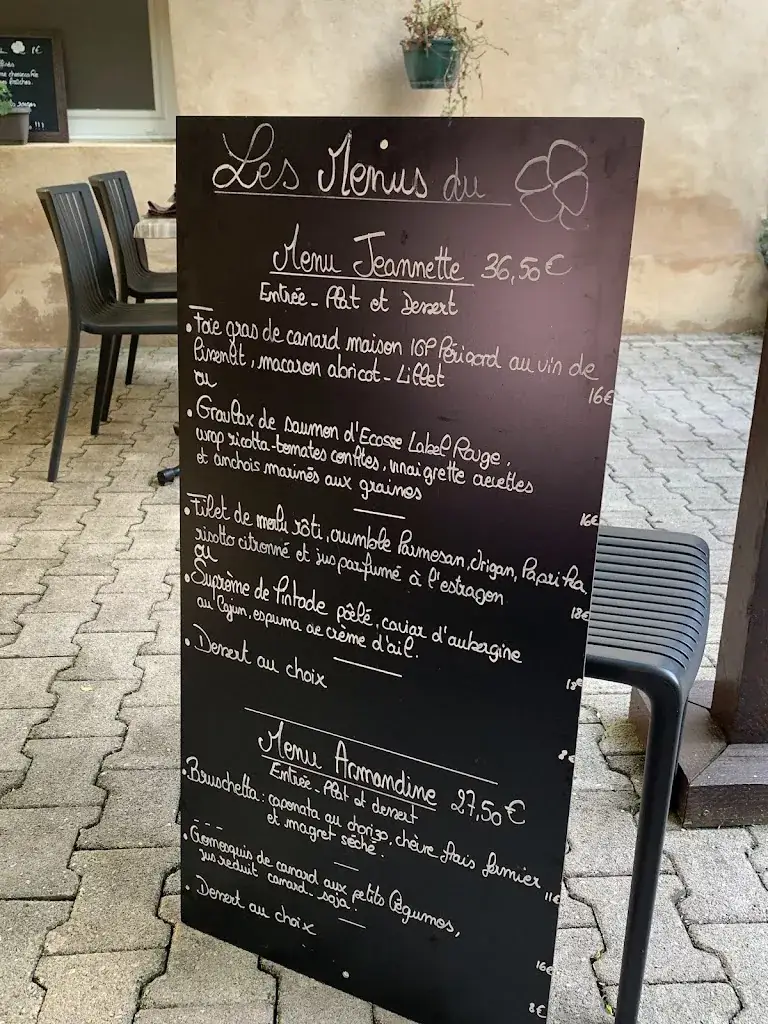 1€
Les Menus du
Menu Jeannette 36,50€
Entrée - Plat et Dessert
• Foie gras de canard maison IGP Périgord au vin de
Pineau, macaron abricot - Lillet
16€
ou
• Gravlax de saumon d'Ecosse Label Rouge,
wrap ricotta-tomates confites, vinaigrette
et anchois marinés aux graines
16€
• Filet de merlu rôti, crumble Parmesan, Origan, Paprika
risotto citronné et jus parfumé à l'estragon
18€
ou
• Suprème de Pintade pôêlé, caviar d'aubergine
au Cajun, espuma de crème d'ail.
18€
• Dessert au choix
8€
Menu Armandine 27,50€
Entrée - Plat et dessert
• Bruschetta : caponata au chorizo, chèvre frais fermier
et magret séché.
11€
• de canard aux petits légumes,
jus réduit canard - soja.
16€
• Dessert au choix
8€